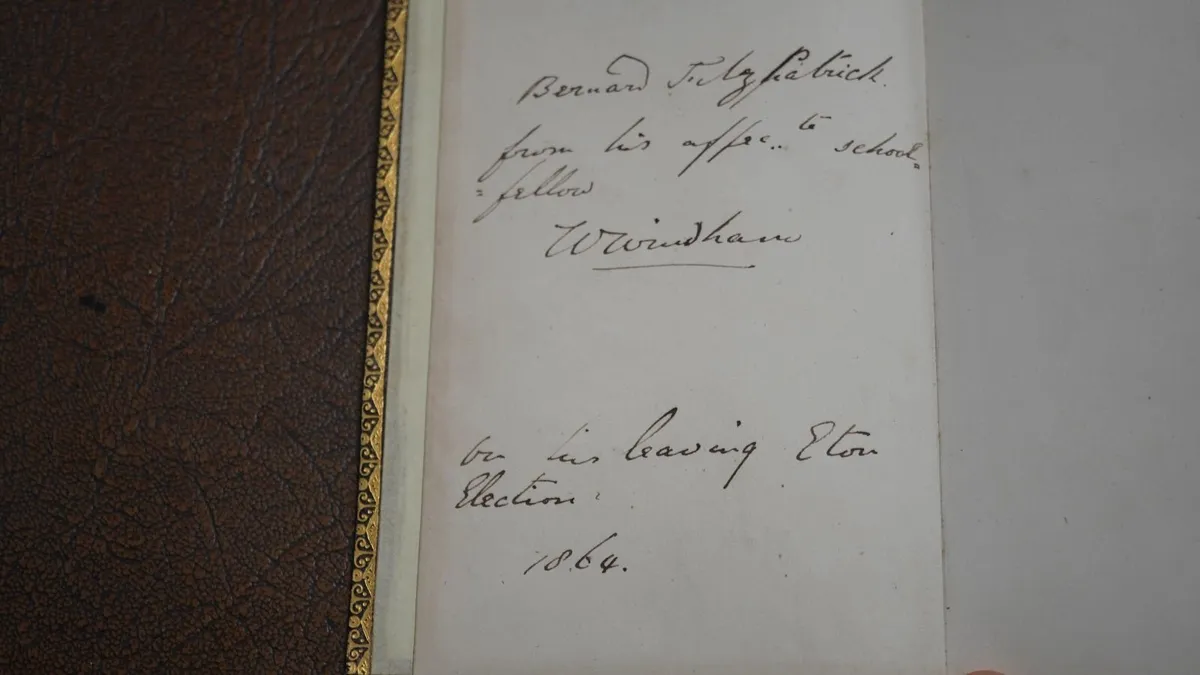 Bernard Fitzpatrick.
from his affec..te school=
=fellow
WWindham
on his leaving Eton
Election.
1864.